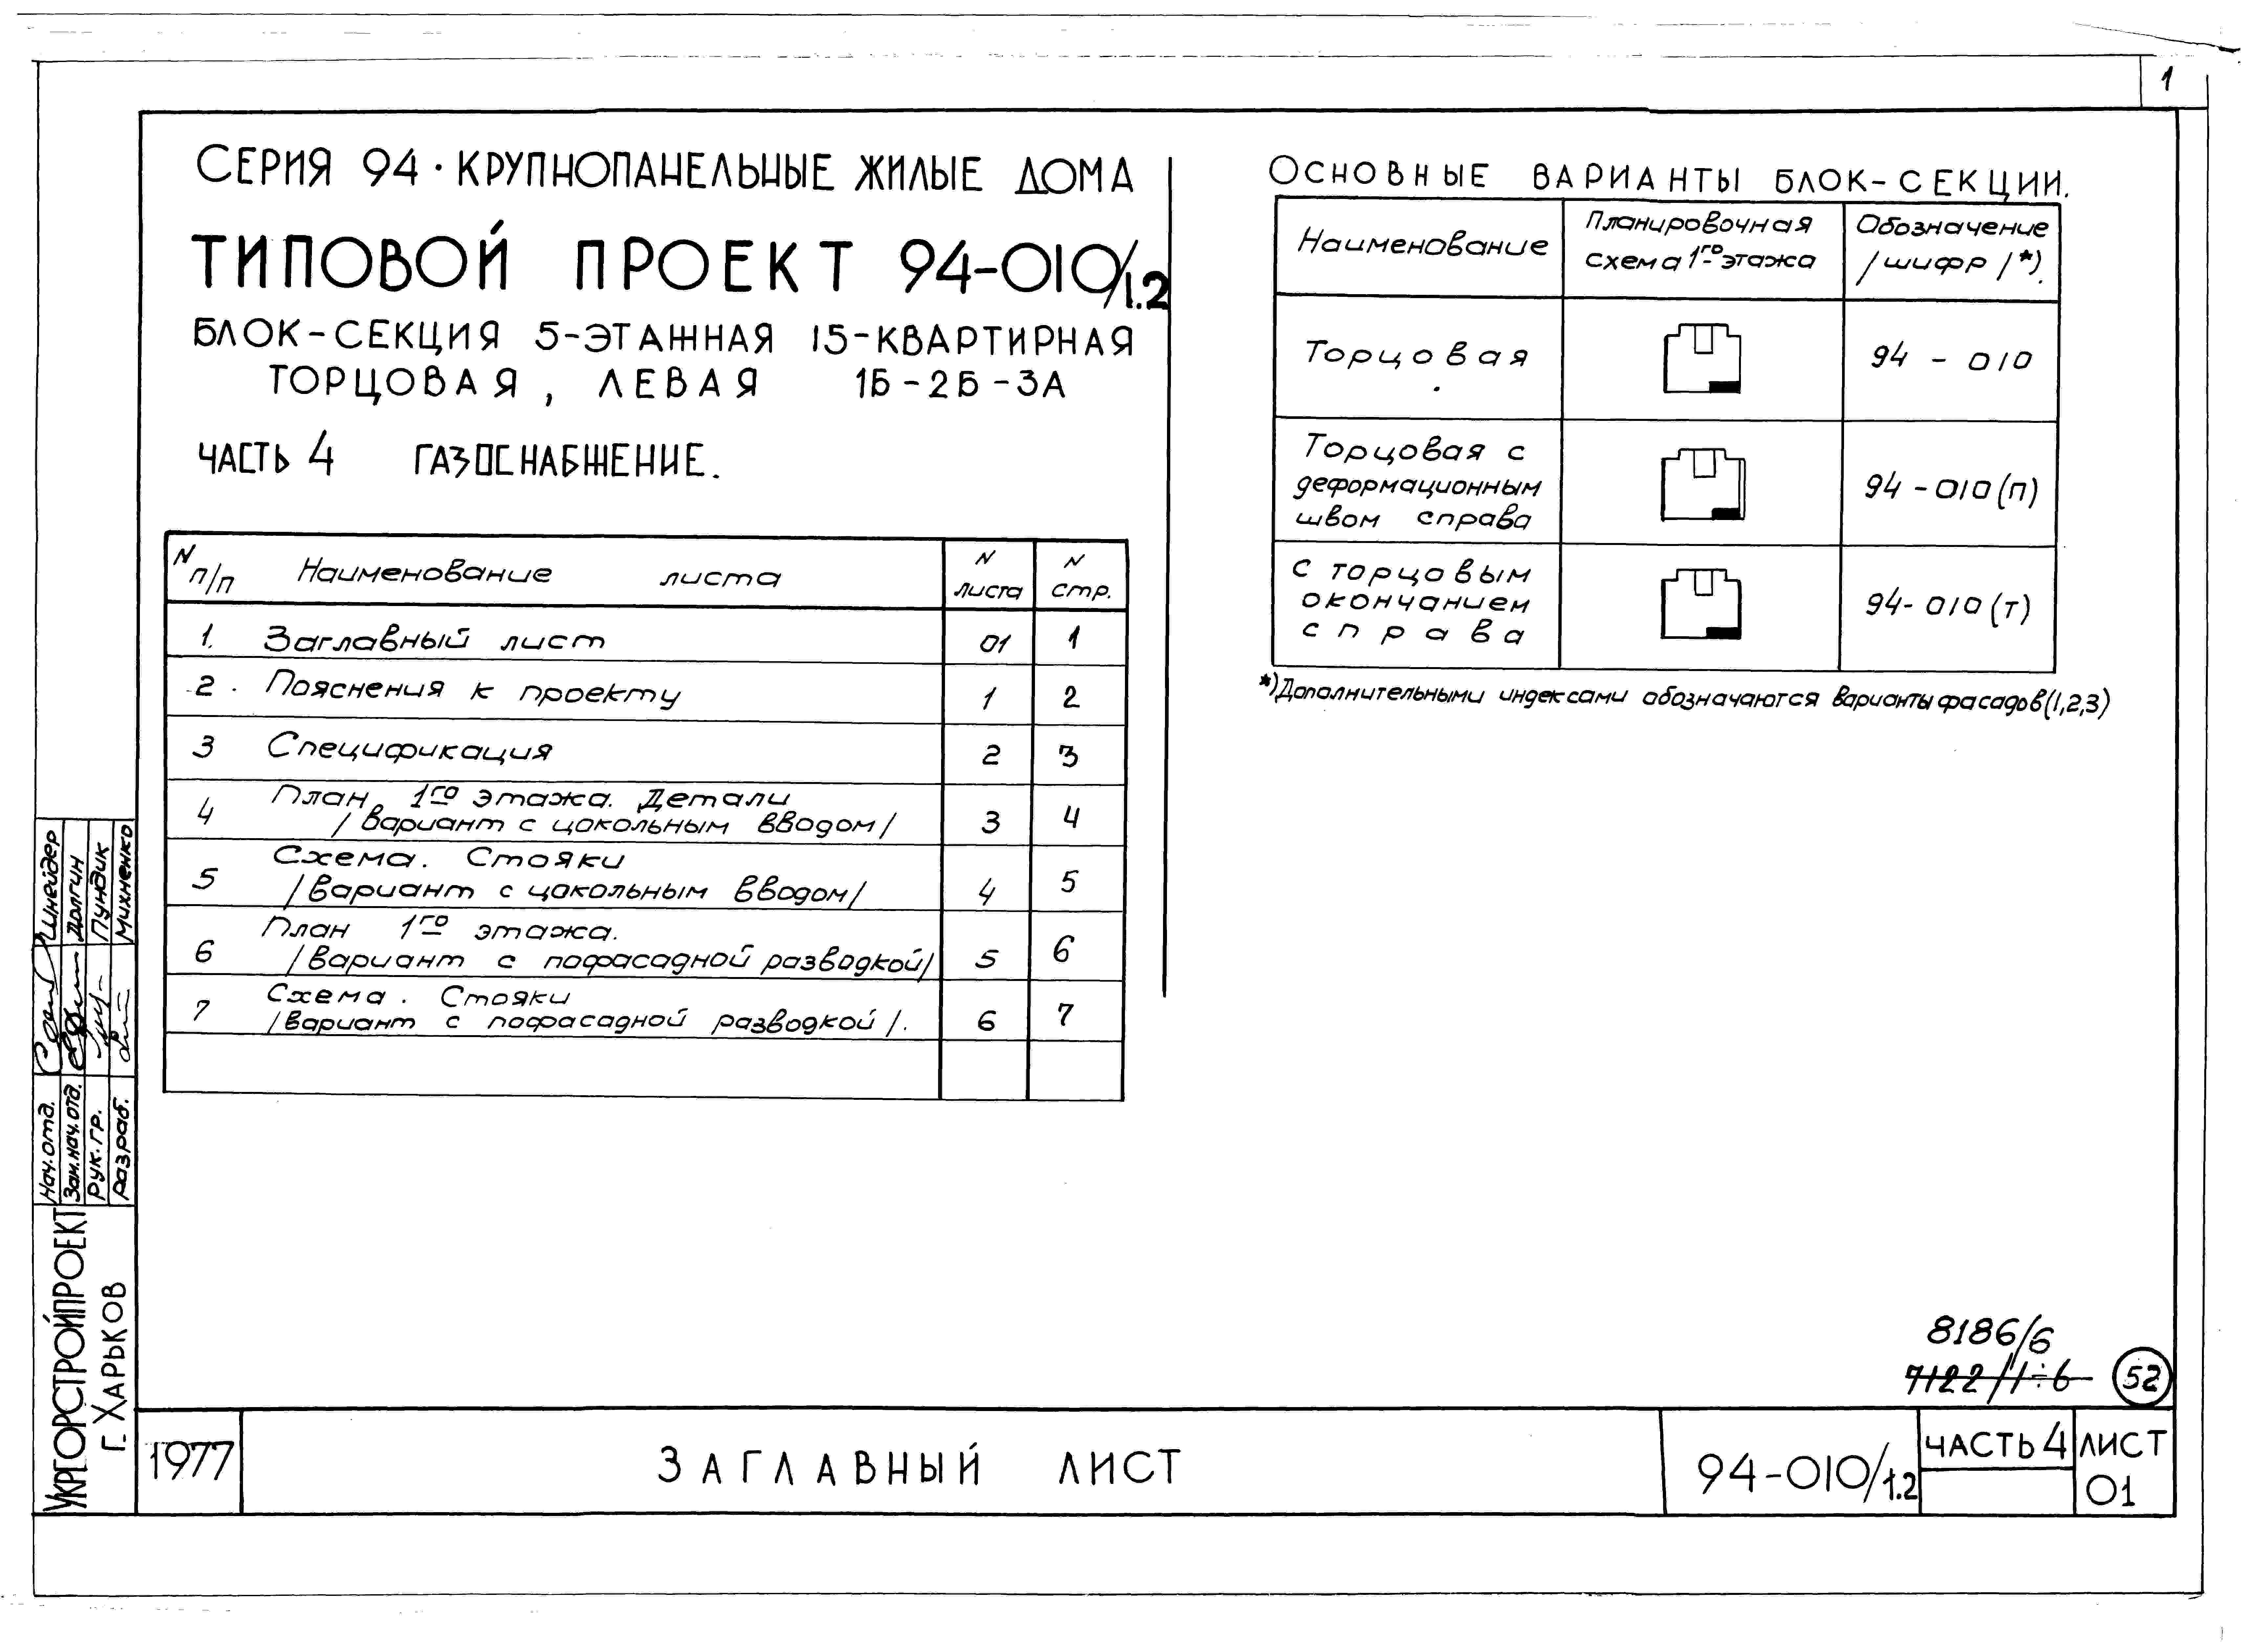 1
СЕРИЯ 94 · КРУПНОПАНЕЛЬНЫЕ ЖИЛЫЕ ДОМА
ТИПОВОЙ ПРОЕКТ 94-010/1.2
БЛОК-СЕКЦИЯ 5-ЭТАЖНАЯ 15-КВАРТИРНАЯ
ТОРЦОВАЯ, ЛЕВАЯ 1Б-2Б-3А
ЧАСТЬ 4 ГАЗОСНАБЖЕНИЕ.
N п/п Наименование листа N листа N стр.
1. Заглавный лист 01 1
2. Пояснения к проекту 1 2
3 Спецификация 2 3
4 План 1го этажа. Детали
/вариант с цокольным вводом/ 3 4
5 Схема. Стояки
/вариант с цокольным вводом/ 4 5
6 План 1го этажа.
/вариант с пофасадной разводкой/ 5 6
7 Схема. Стояки
/вариант с пофасадной разводкой/. 6 7
ОСНОВНЫЕ ВАРИАНТЫ БЛОК-СЕКЦИИ.
Наименование Планировочная схема 1го этажа Обозначение /шифр/*).
Торцовая 94-010
Торцовая с
деформационным
швом справа 94-010(п)
с торцовым
окончанием
справа 94-010(т)
*)Дополнительными индексами обозначаются варианты фасадов(1,2,3)
Нач.отд. Шнейдер
Зам.нач.отд. Долгин
Рук.гр. Пундик
Разраб. Михненко
УКРГОРСТРОЙПРОЕКТ
Г. ХАРЬКОВ
8186/6
7122/1÷6
52
1977 ЗАГЛАВНЫЙ ЛИСТ 94-010/1.2 ЧАСТЬ 4 ЛИСТ
01